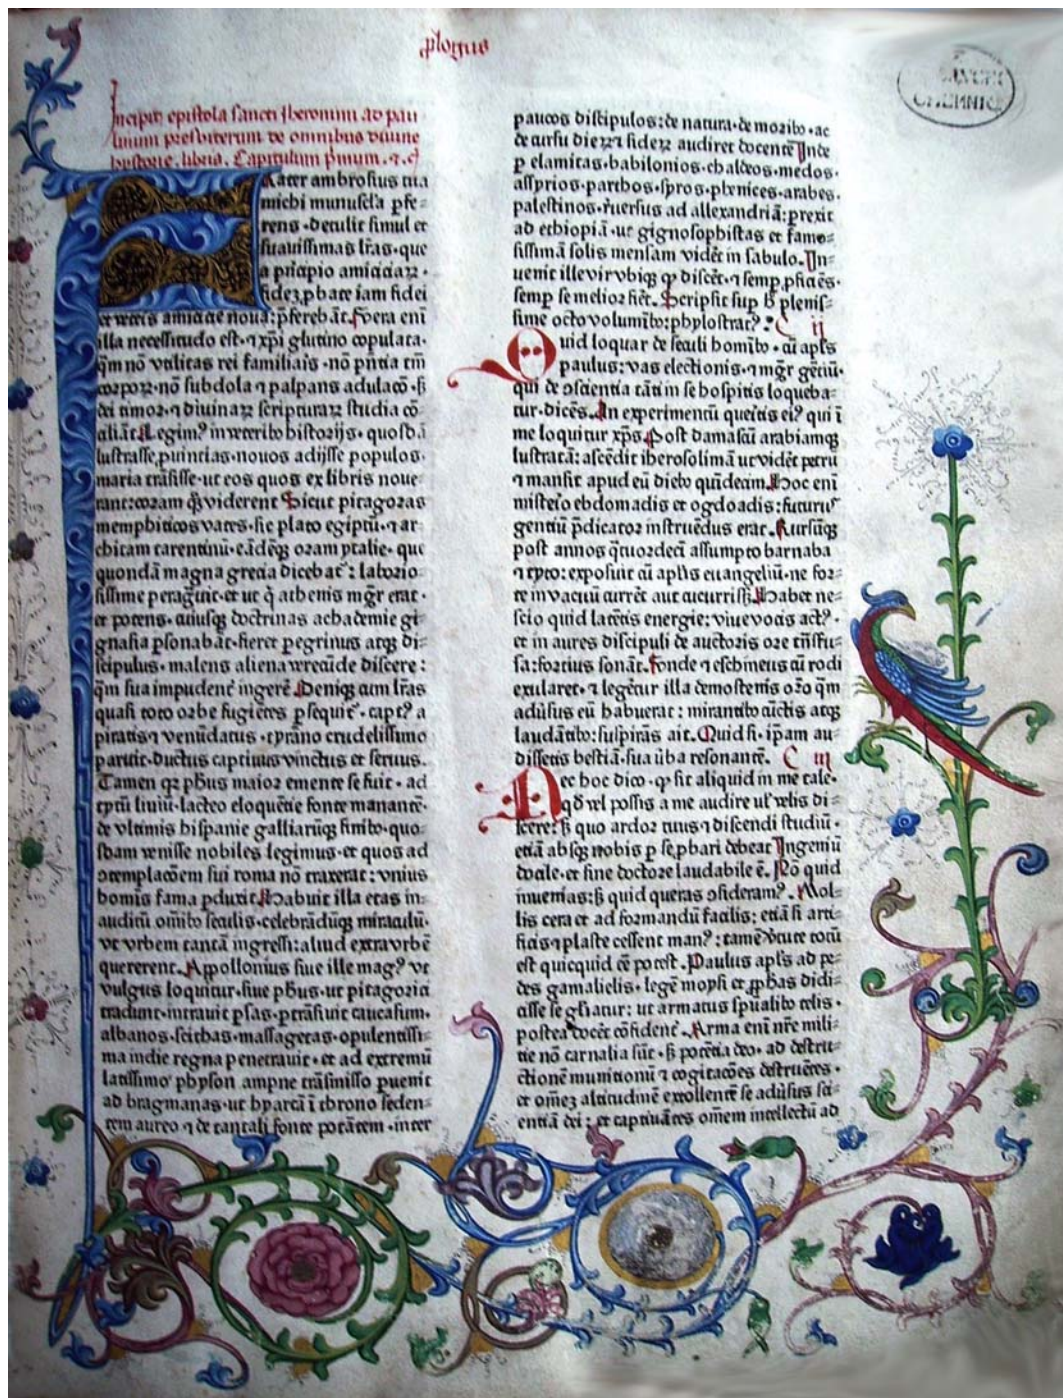 ꝓlogus
Incipit epistola sancti Iheronimi ad pau
linum presbiterum de omnibus diuine
historie libris. Capitulum pͥmum. ⁊ c̃
FRater ambrosius tua
michi munuscl'a pfe⸗
rens · detulit simul et
suauissimas lr̃as · que
a pͥncipio amiciciaꝝ ·
fideꝫ ꝓbate iam fidei
et veteris amicicie noua: p̃ferebāt. Vera enī
illa necessitudo est · ⁊ xp̃i glutino copulata ·
q̄m nō vtilitas rei familiaris · nō pn̄tia tm̄
corpoꝝ · nō subdola ⁊ palpans adulacō · sꝫ
dei timor · ⁊ diuinaꝝ scripturaꝝ studia cō⸗
ciliāt. Legim⁹ in veteribꝰ historijs · quosdā
lustrasse ꝓuincias · nouos adijsse populos ·
maria trāsisse · ut eos quos ex libris noue⸗
rant: coram qꝫ viderent. Sicut pitagoras
memphiticos vates · sic plato egiptū · ⁊ ar⸗
chitam tarentinū · eādēqꝫ oram ytalie · que
quondā magna grecia dicebat᷑: laborio⸗
sissime peragᷓuit · et ut qͥ athenis mgr̃ erat ·
et potens · cuiusqꝫ doctrinas achademie gi⸗
gnasia ꝑsonabāt · fieret pegrinus atqꝫ di⸗
scipulus · malens aliena verecūde discere:
q̄m sua impudent̃ ingerē. Deniqꝫ cum lr̃as
quasi toto orbe fugiētes ꝑsequit᷑ · capt⁹ a
piratis ⁊ venūdatus · tyrāno crudelissimo
paruit · ductus captiuus vinctus et seruus.
Tamen qꝛ ph̃us maior emente se fuit · ad
tytū liuiū · lacteo eloquētie fonte manantē ·
de vltimis hispanie galliarūqꝫ finibꝰ · quo⸗
sdam venisse nobiles legimus · et quos ad
ꝯtemplacōem sui roma nō traxerat: vnius
homīs fama ꝑduxit. Habuit illa etas in⸗
auditū om̄ibꝰ seculis · celebrādūqꝫ miraculū ·
vt vrbem tantā ingressi: aliud extra vrbē
quererent. Appollonius siue ille mag⁹ vt
vulgus loquitur · siue ph̃us · ut pitagorici
tradunt · intrauit psas · ptrāsiuit caucasum ·
albanos · scithas · massagetas · opulentissi⸗
ma indie regna penetrauit · et ad extremū
latissimo physon ampne trāsmisso puenit
ad bragmanas · ut hyarcā ī throno seden⸗
tem aureo ⁊ de tantali fonte potātem · inter
paucos discipulos: de natura · de moribꝰ · ac
de cursu dieꝝ ⁊ sideꝝ audiret docentē. Inde
p elamitas · babilonios · chaldeos · medos ·
assyrios · parthos · syros · phenices · arabes ·
palestinos · ruersus ad allexandriā: prexit
ad ethiopiā · ut gignosophistas et famo⸗
sissimā solis mensam vidēt in sabulo. In⸗
uenit ille vir vbiqꝫ qͦ discēt · ⁊ semp ꝓficiēs ·
semp se melior fiēt. Scripsit sup hͦ plenis⸗
sime octo volumībꝰ: phylostrat⁹: C ij
Quid loquar de seculi homībꝰ · cū apl̃s
paulus: vas electionis · ⁊ mgr̃ gētiū ·
qui de ꝯscientia tāti in se hospitis loqueba⸗
tur · dicēs. An experimentū queritis ei⁹ qui ī
me loquitur xp̄s. Post damascū arabiamqꝫ
lustratā: ascēdit iherosolimā ut vidēt petrū
⁊ mansit apud eū diebꝰ quīdecim. Hoc enī
misterio ebdomadis et ogdoadis: futurus
gentiū p̄dicator instruēdus erat. Rursūqꝫ
post annos qᷓtuordecī assumpto barnaba
⁊ tyto: exposuit cū apl̃is euangeliū · ne for⸗
te in vacuū currēt aut cucurrissꝫ. Habet ne⸗
scio quid latētis energie: viue vocis act⁹ ·
et in aures discipuli de auctoris ore trāsfu⸗
sa: fortius sonāt. Vnde ⁊ eschineus cū rodi
exularet · ⁊ legēetur illa demostenis oro q̄m
aduersus eū habuerat: mirantibꝰ cūctis atqꝫ
laudātibꝰ: suspirās ait. Quid si ip̃am au⸗
dissetis bestiā · sua v̄ba resonantē. C iii
Nec hoc dico · qͦ sit aliquid in me tale ·
qd̃ vel possis a me audire ul' velis di⸗
scere: sꝫ quo ardor tuus ⁊ discendi studiū ·
etiā absqꝫ nobis p se ꝓbari debeat. Ingeniū
docile · et sine doctore laudabile ē. Nō quid
inuenias: sꝫ quid queras ꝯsideram⁹. Mol⸗
lis cera et ad formandū facilis: etiā si arti⸗
ficis ⁊ plaste cessent man⁹: tamē v̓tute totū
est quicquid ēē potest. Paulus apl̃s ad pe⸗
des gamalielis · legē moysi et ꝓphas didi⸗
cisse se gl'iatur: ut armatus spūalibꝰ telis ·
postea docēt cōfident̃. Arma enī nr̄e mili⸗
tie nō carnalia sūt · sꝫ potētia deo · ad destru⸗
ctionē munitionū ⁊ cogitacōes destruētes ·
et omeꝫ altitudinē extollentē se aduersus sci⸗
entiā dei: et captiuātes om̄em intellectū ad
CHEMNITZ